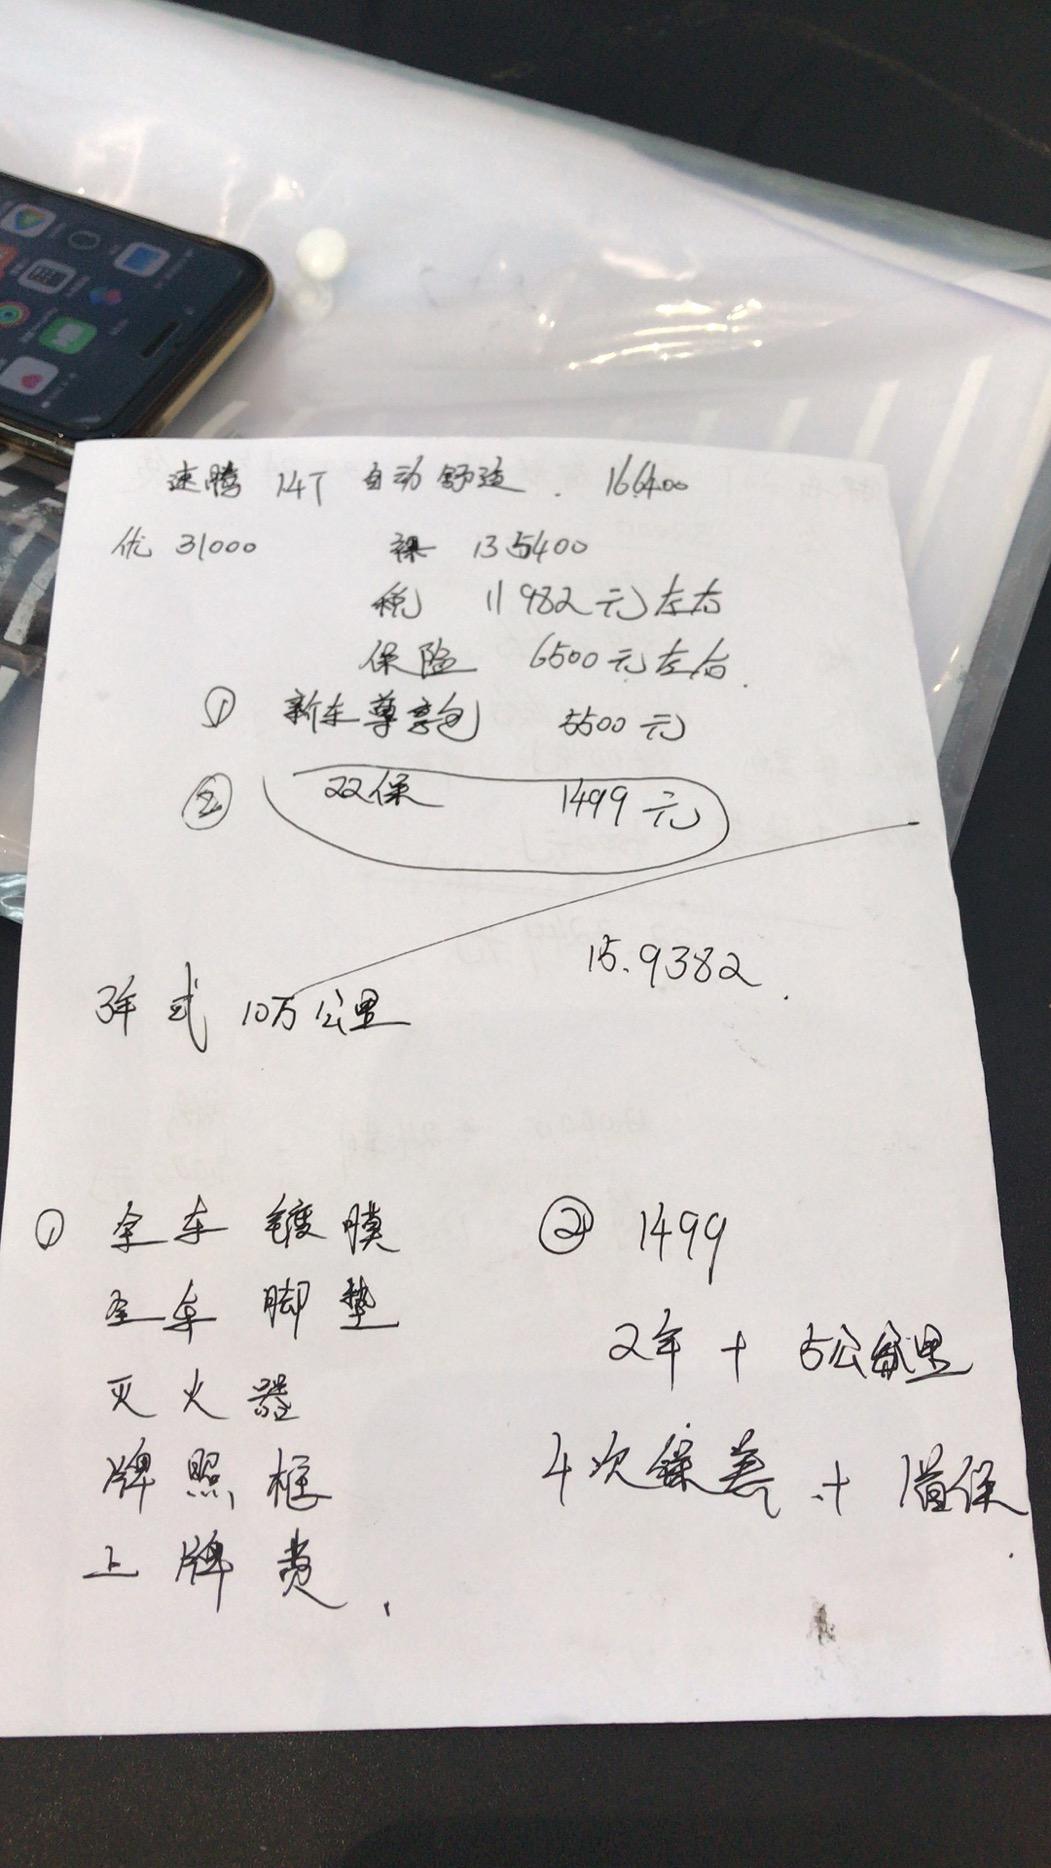 速腾 14T 自动舒适. 166400
优 31000 裸 135400
税 11982元左右
保险 6500元左右.
① 新车尊享包 5500元
② 22保 1499元
15.9382.
3年 或 10万公里
① 全车 镀膜
全车 脚垫
灭火器
牌照框
上牌费.
② 1499
2年 + 5公里
4次保养 + 1首保.